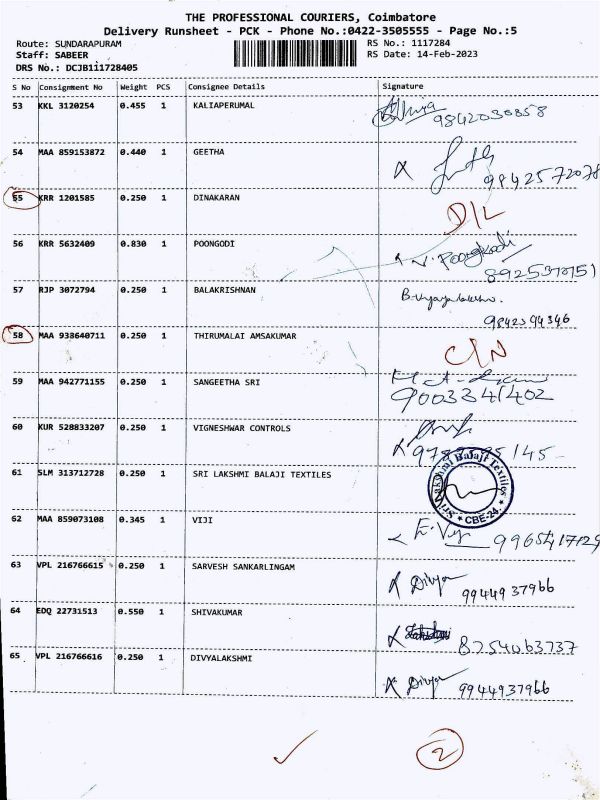 THE PROFESSIONAL COURIERS, Coimbatore
Delivery Runsheet - PCK - Phone No.:0422-3505555 - Page No.:5
Route: SUNDARAPURAM
Staff: SABEER
DRS No.: DCJB111728405
RS No.: 1117284
RS Date: 14-Feb-2023
S No Consignment No Weight PCS Consignee Details Signature
53 KKL 3120254 0.455 1 KALIAPERUMAL
54 MAA 859153872 0.440 1 GEETHA 9842572078
55 KRR 1201585 0.250 1 DINAKARAN D/L
56 KRR 5632409 0.830 1 POONGODI V. Poongkodi
57 RJP 3072794 0.250 1 BALAKRISHNAN
58 MAA 938640711 0.250 1 THIRUMALAI AMSAKUMAR C/N
59 MAA 942771155 0.250 1 SANGEETHA SRI 9003341402
60 KUR 528833207 0.250 1 VIGNESHWAR CONTROLS
61 SLM 313712728 0.250 1 SRI LAKSHMI BALAJI TEXTILES Sri Lakshmi Balaji Textiles * CBE-24. *
62 MAA 859073108 0.345 1 VIJI 9965417129
63 VPL 216766615 0.250 1 SARVESH SANKARLINGAM Divya 9944937966
64 EDQ 22731513 0.550 1 SHIVAKUMAR 8754063737
65 VPL 216766616 0.250 1 DIVYALAKSHMI Divya 9944937966
2